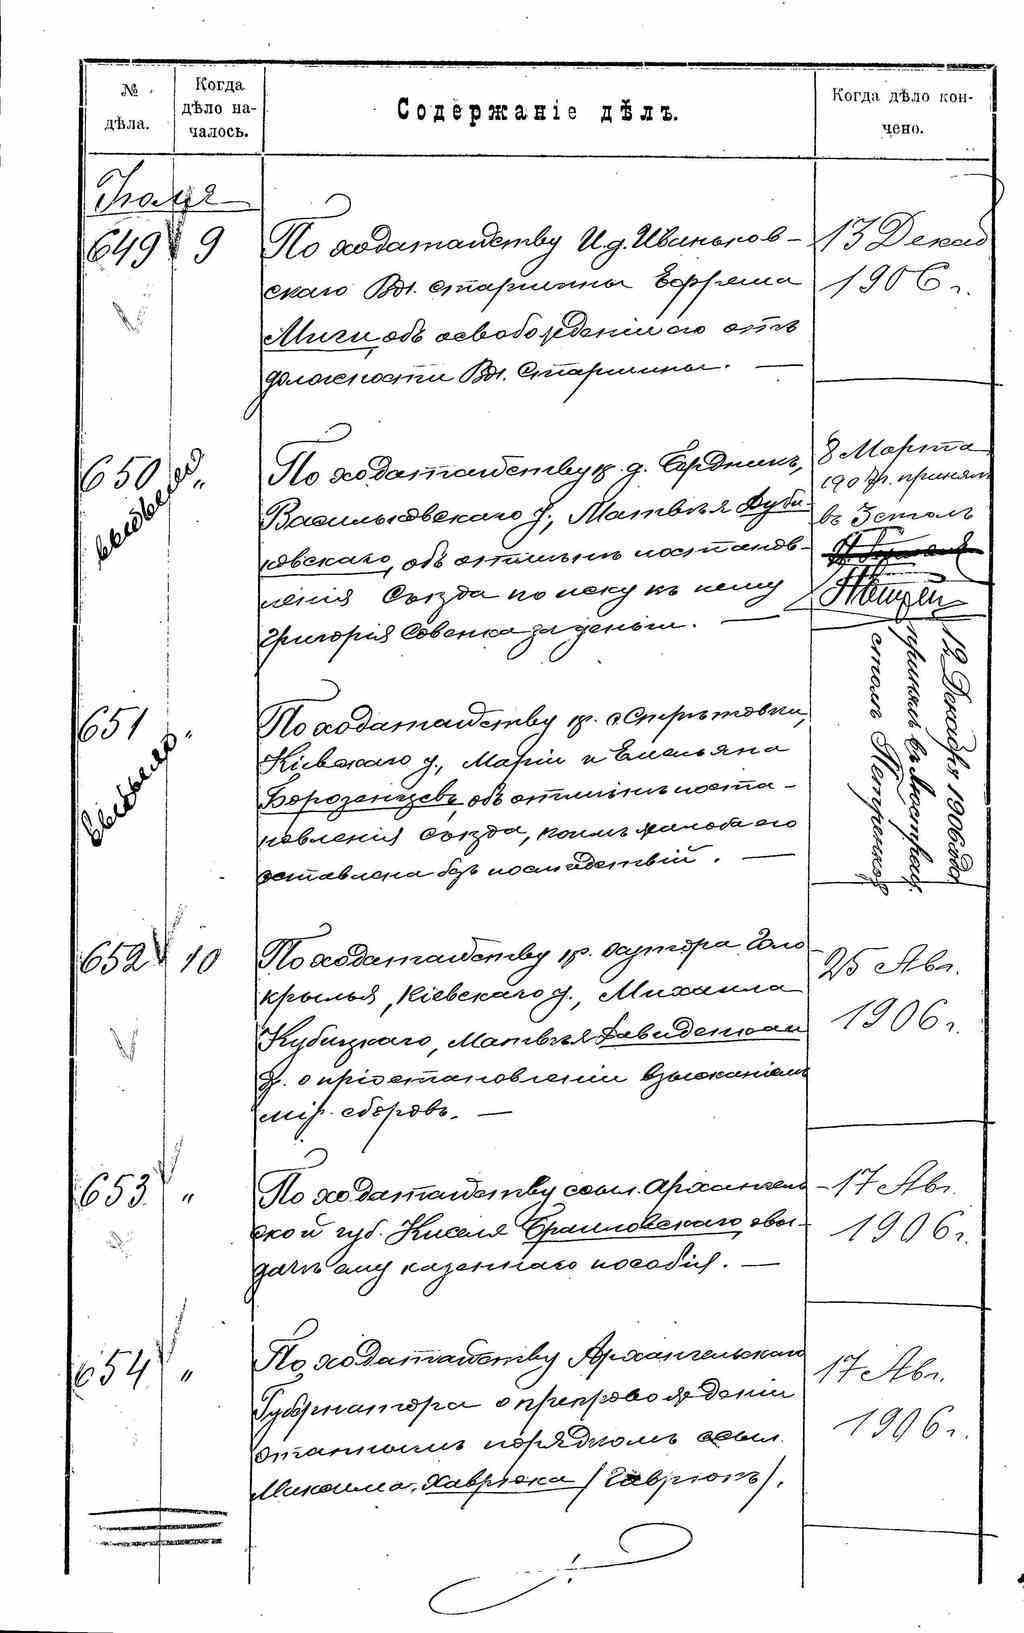 № дѣла.
Когда дѣло началось.
Содержаніе дѣлъ.
Когда дѣло кончено.
Іюля
649 9 По ходатайству И.д. Иваньков-
скаго Вол. старшины Ефрема
Миги, объ освобожденіи его отъ
должности Вол. Старшины. —
13 Декаб
1906 г.
650 „ По ходатайству кр. д. Бердникъ,
выбыло
Васильковскаго у., Матвѣя Дуби-
ковскаго, объ отмѣнѣ постанов-
ленія Съѣзда по иску къ нему
Григорія Совенка за деньги. —
8 Марта
190 г. принялъ
въ 3 столъ
651 „ По ходатайству кр. с. Стрѣтовки,
выбыло
Кіевскаго у., Маріи и Емельяна
Борозенцевъ, объ отмѣнѣ поста-
новленія Съѣзда, коимъ жалоба его
оставлена безъ послѣдствій. —
12 Декабря 1906 года
принялъ въ
столъ Петренко
652 10 По ходатайству кр. хутора Голо
крылья, Кіевскаго у., Михаила
Кубицкаго, Матвѣя Давиденко и
др. о пріостановленіи взысканіемъ
мір. сборовъ. —
25 Авг.
1906 г.
653 „ По ходатайству ссыл. Архангель
ской губ. Киселя Браиловскаго, о вы-
дачѣ ему казеннаго пособія. —
17 Авг.
1906 г.
654 „ По ходатайству Архангельскаго
Губернатора о препровожденіи
этапнымъ порядкомъ ссыл.
Максима Хаврюка / Гаврюкъ /.
17 Авг.
1906 г.